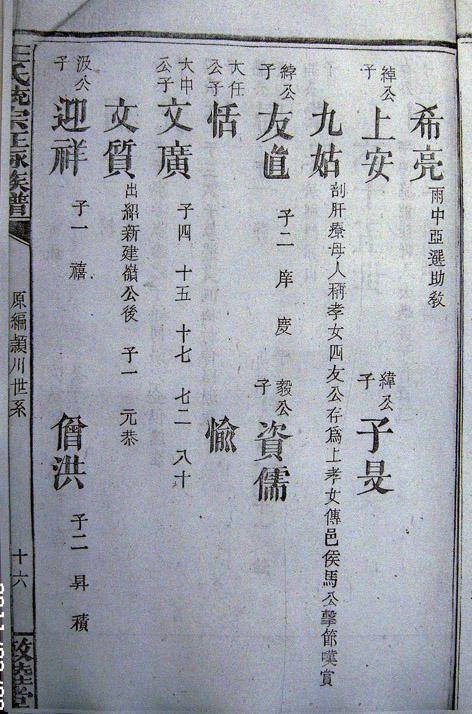 希亮 兩中亞選助教
綽公子 上安 緯公子 子旻
九姑 刮肝療母人稱孝女四友公存爲上孝女傳邑侯馬公擊節嘆賞
綽公子 友直 子二 庠 慶 毅公子 資儒
大任公子 恬 愉
大中公子 文廣 子四 十五 十七 七二 八十
文質 出紹新建嶺公後 子一 元恭
汲公子 迎祥 子一 禧 僧洪 子二 昇 積
氏統宗正脉族譜
原編潁川世系
十六
敦睦堂